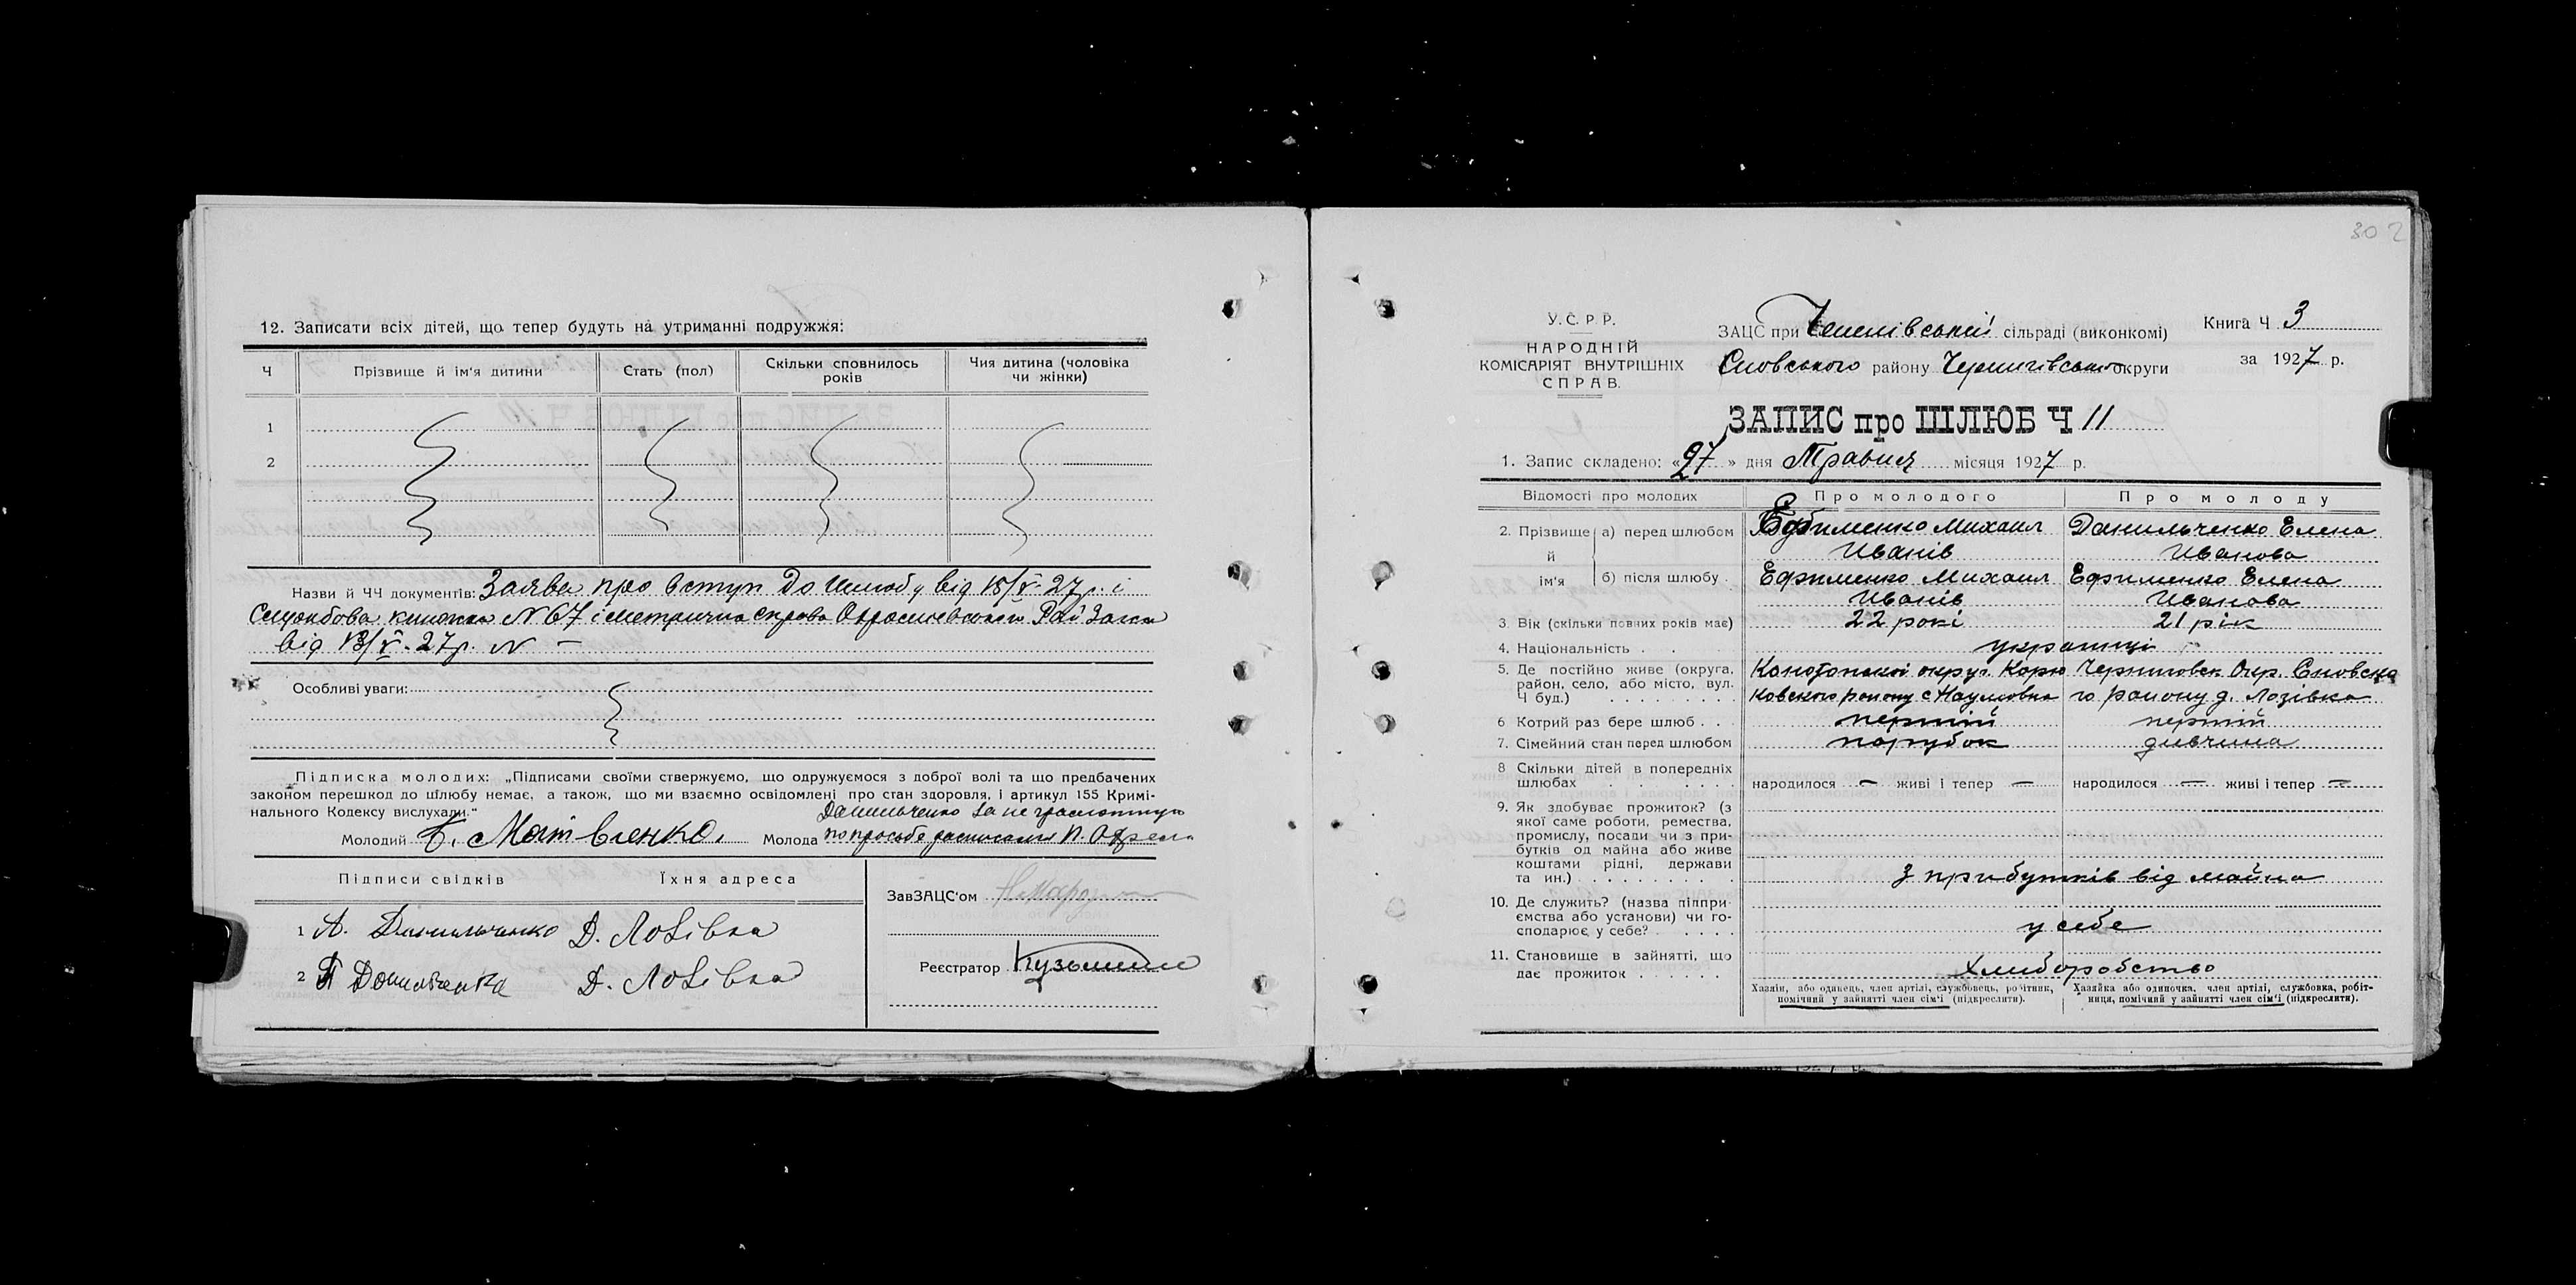 12. Записати всіх дітей, що тепер будуть на утриманні подружжя:
Ч Прізвище й ім'я дитини Стать (пол) Скільки сповнилось років Чия дитина (чоловіка чи жінки)
1
2
Назви й ЧЧ документів: Заява про вступ До Шлюбу від 18/V-27р. і
Службова книжка N 67 і метрична справа
від 13/V-27р. N —
Особливі уваги:
Підписка молодих: „Підписами своїми ствержуємо, що одружуємося з доброї волі та що предбачених
законом перешкод до шлюбу немає, а також, що ми взаємно освідомлені про стан здоровля, і артикул 155 Кримі-
нального Кодексу вислухали."
Данильченко за не грамотную
Молодий Молода по просьбе росписался П.
Підписи свідків Їхня адреса
1 А. Данильченко Д. Лозівка
2 Д. Лозівка
ЗавЗАЦС'ом
Реєстратор
302
У.С.Р.Р.
НАРОДНІЙ
КОМІСАРІЯТ ВНУТРІШНІХ
СПРАВ.
ЗАЦС при сільраді (виконкомі)
Сновського району Чернігівської округи
Книга Ч 3
за 1927 р.
ЗАПИС про ШЛЮБ Ч 11
1. Запис складено: «27» дня Травня місяця 1927 р.
Відомості про молодих Про молодого Про молоду
2. Прізвище й ім'я
а) перед шлюбом Ефименко Михаил Данильченко Елена
Иванів Иванова
б) після шлюбу. Ефименко Михаил Ефименко Елена
Иванів Иванова
3. Вік (скільки повних років має) 22 рокі 21 рік
4. Національність . . українці
5. Де постійно живе (округа, район, село, або місто, вул. Ч буд.)
Конотопской округ. Корю Черниговск. Окр. Сновска
ковского району с Наумовка го району д. Лозівка
6 Котрий раз бере шлюб . . . перший перший
7. Сімейний стан перед шлюбом парубок дивчина
8 Скільки дітей в попередніх шлюбах народилося — живі і тепер — народилося — живі і тепер —
9. Як здобуває прожиток? (з
якої саме роботи, ремества,
промислу, посади чи з при-
бутків од майна або живе
коштами рідні, держави
та ин.) з прибутків від майна
10. Де служить? (назва підпри-
ємства або установи) чи го-
сподарює у себе? у себе
11. Становище в зайнятті, що
дає прожиток Хлиборобство
Хазяін, або одинець, член артілі, службовець, робітник,
помічний у зайнятті член сім'ї (підкреслити).
Хазяйка або одиночка, член артілі, службовка, робіт-
ниця, помічний у зайнятті член сім'ї (підкреслити).